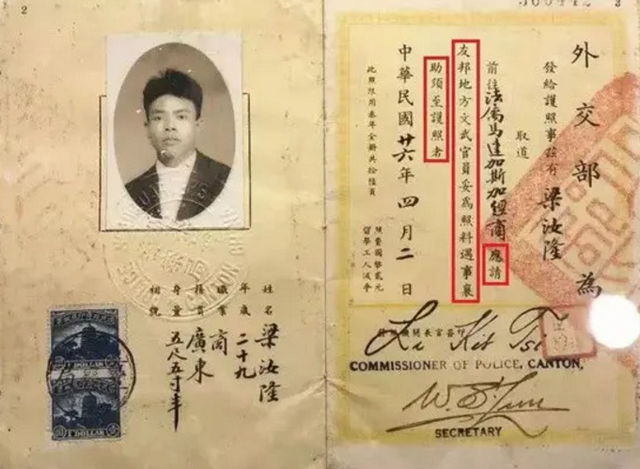 外交部為
發給護照事茲有 梁汝隆
取道
前往 法屬馬達加斯加經商 應請
友邦地方文武官員妥為照料遇事襄
助須至護照者
中華民國廿六年四月二日
此照限用叁年全冊共拾陸頁
照費國幣貳元
留學工人減半
Li Kit Tsi
COMMISSIONER OF POLICE, CANTON,
SECRETARY
3
2
姓名 梁汝隆
年歲 二十九
職業 商
籍貫 廣東
身量 五尺五寸半
相貌
1 DOLLAR
1 DOLLAR